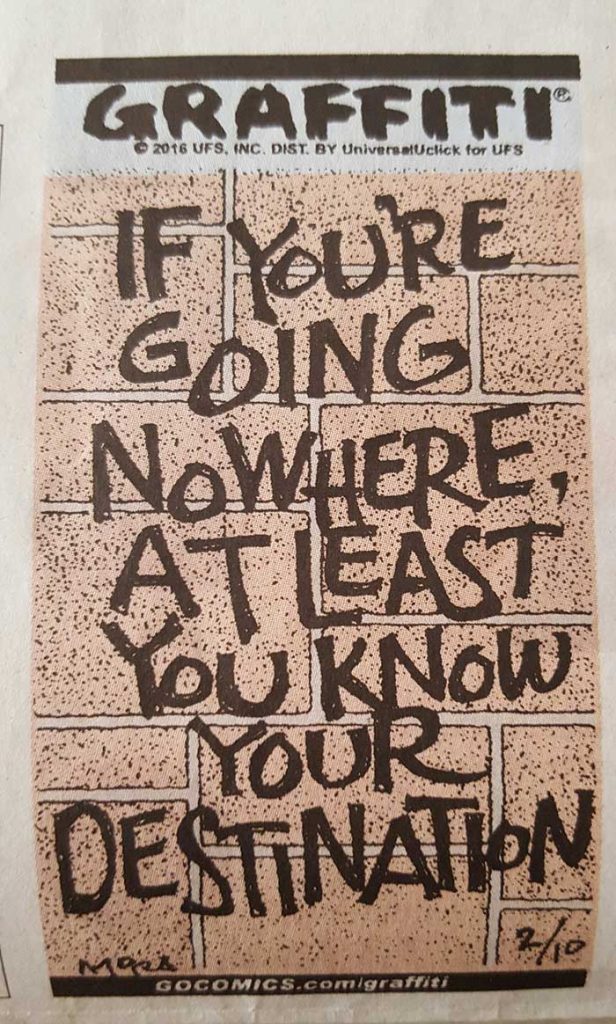 GRAFFITI®
© 2016 UFS, INC. DIST. BY UniversalUclick for UFS
IF YOU'RE
GOING
NOWHERE,
AT LEAST
YOU KNOW
YOUR
DESTINATION
2/10
GOCOMICS.com/graffiti